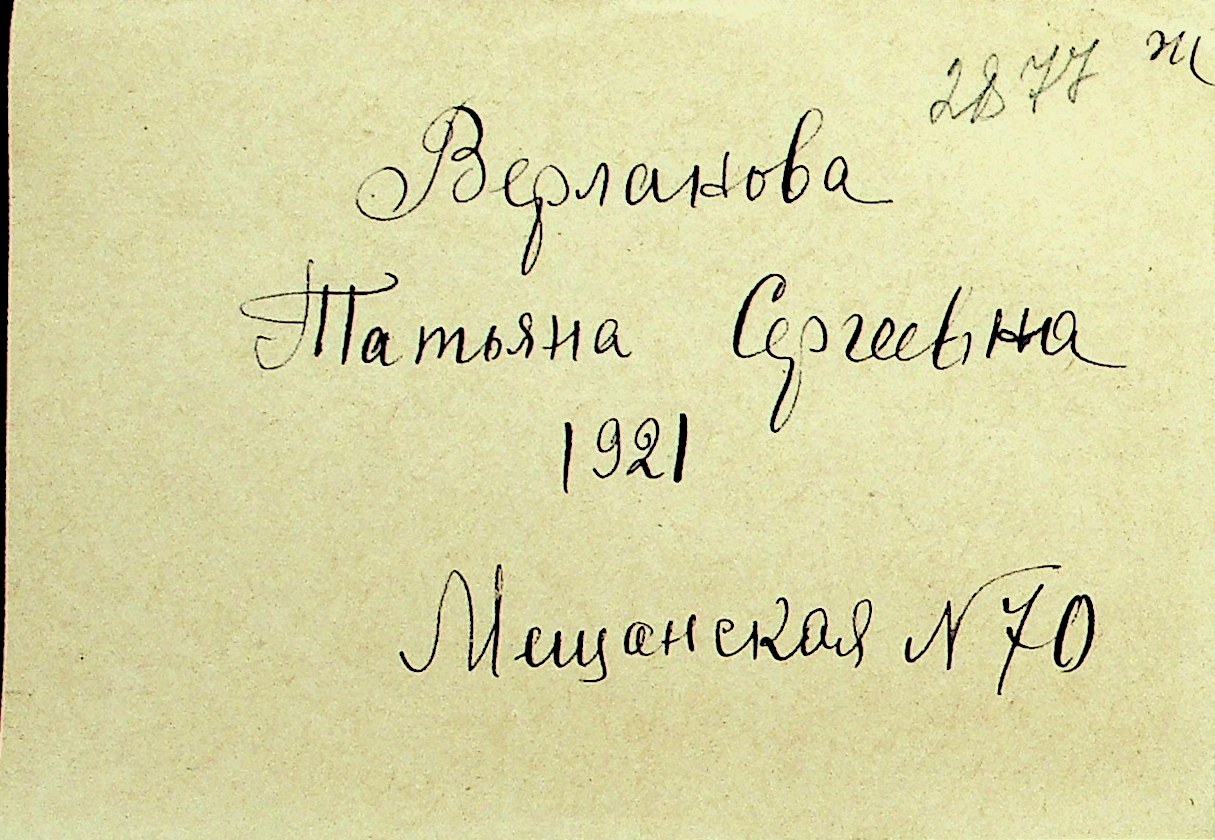 2877 ж
Верланова
Татьяна Сергеевна
1921
Мещанская N 70